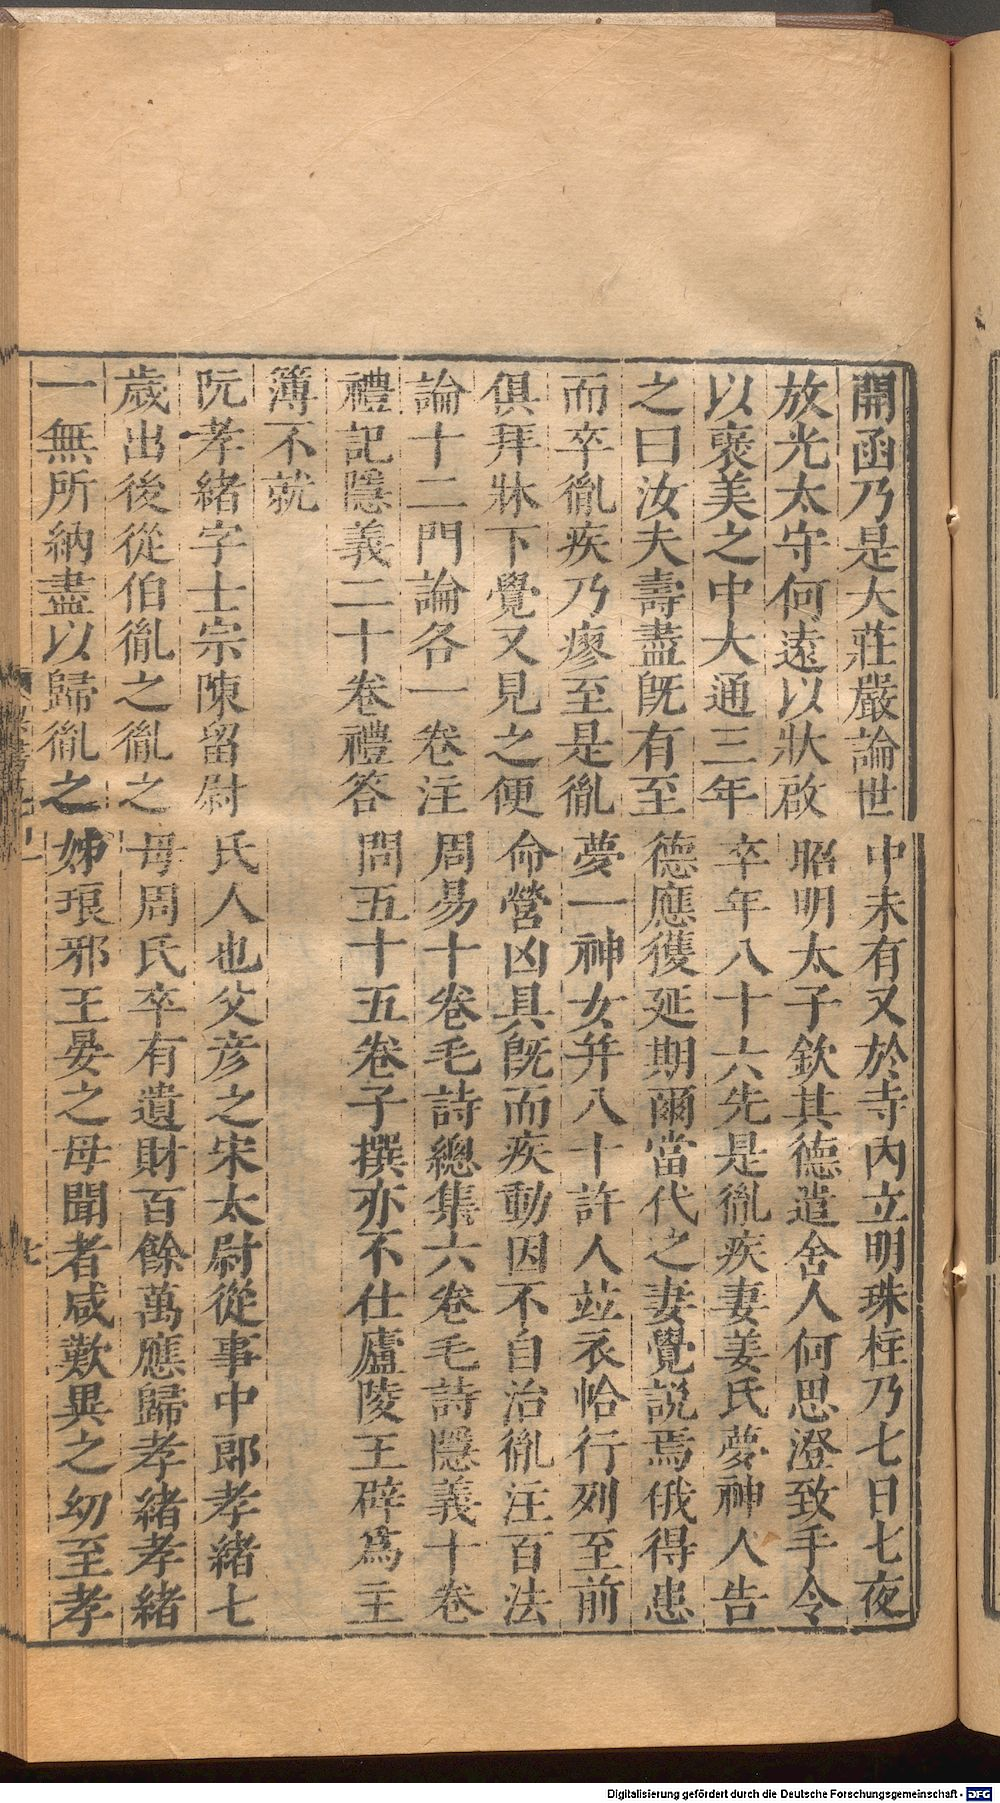 開函乃是大莊嚴論世中未有又於寺内立明珠柱乃七日七夜
放光太守何遠以狀啟昭明太子欽其德遣舍人何思澄致手令
以襃美之中大通三年卒年八十六先是胤疾妻姜氏夢神人告
之曰汝夫壽盡旣有至德應獲延期爾當代之妻覺説焉俄得患
而卒胤疾乃瘳至是胤夢一神女并八十許人並衣帢行列至前
俱拜牀下覺又見之便命營凶具旣而疾動因不自治胤注百法
論十二門論各一卷注周易十卷毛詩總集六卷毛詩隱義十卷
禮記隱義二十卷禮答問五十五卷子撰亦不仕廬陵王辟爲主
簿不就
阮孝緒字士宗陳留尉氏人也父彦之宋太尉從事中郎孝緒七
歲出後從伯胤之胤之母周氏卒有遺財百餘萬應歸孝緒孝緒
一無所納盡以歸胤之姊琅邪王晏之母聞者咸歎異之幼至孝
Digitalisierung gefördert durch die Deutsche Forschungsgemeinschaft - DFG